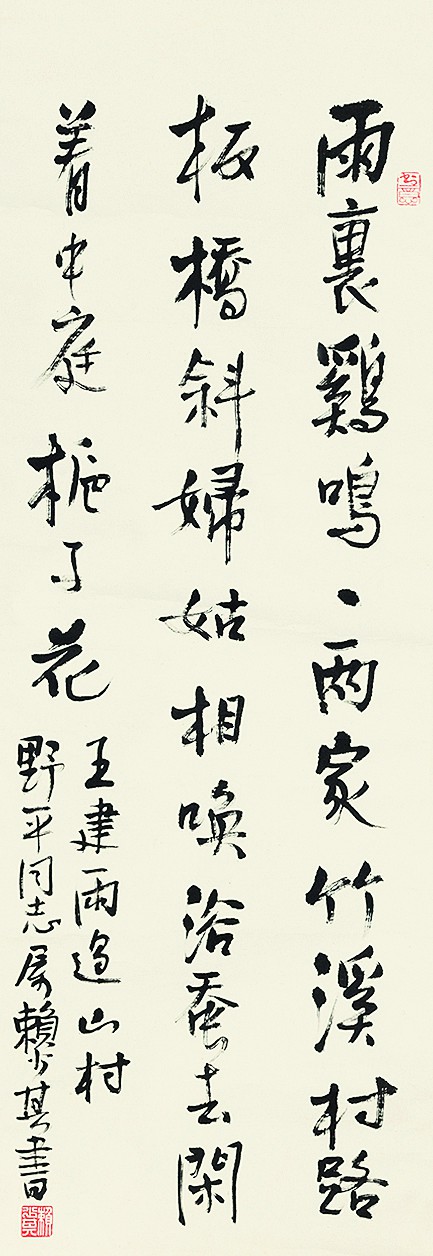 雨裏鷄鳴一兩家竹溪村路
板橋斜婦姑相唤浴蚕去閑
着中庭栀子花
王建雨過山村
野平同志属賴少其書